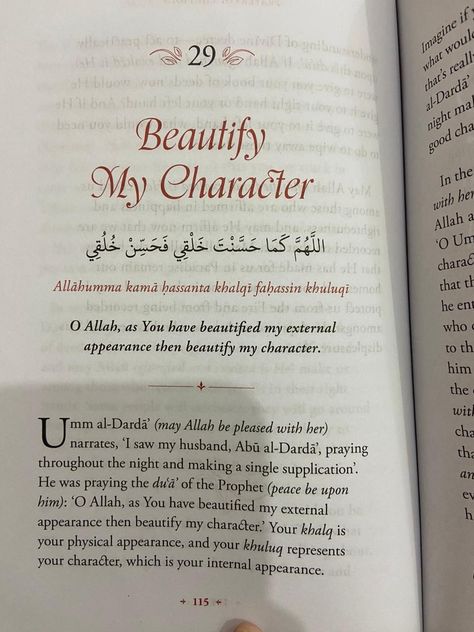 29
Beautify
My Character
اللَّهُمَّ كَمَا حَسَّنْتَ خَلْقِي فَحَسِّنْ خُلُقِي
Allāhumma kamā ḥassanta khalqī faḥassin khuluqī
O Allah, as You have beautified my external
appearance then beautify my character.
Umm al-Dardā’ (may Allah be pleased with her)
narrates, ‘I saw my husband, Abū al-Dardā’, praying
throughout the night and making a single supplication’.
He was praying the du‘ā’ of the Prophet (peace be upon
him): ‘O Allah, as You have beautified my external
appearance then beautify my character.’ Your khalq is
your physical appearance, and your khuluq represents
your character, which is your internal appearance.
115
Imagine if
what would
that’s really
al-Dardā’
night mak
good cha
In the
with her)
Allah a
‘O Um
charac
that th
he ent
who
to th
him
the
wit